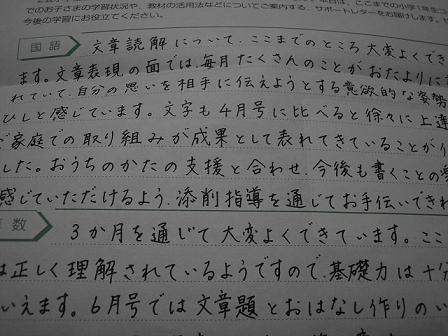 でのお子さまの学習状況や、教材の活用法などについてご案内する、サポートレターをお届けします。
今後の学習にお役立てください。
国語
文章読解について、ここまでのところ大変よくでき
ます。文章表現の面では、毎月たくさんのことがおたよりに
れていて、自分の思いを相手に伝えようとする意欲的な姿勢
ひしと感じています。文字も4月号に比べると徐々に上達
ご家庭での取り組みが成果として表れてきていることが
した。おうちのかたの支援と合わせ、今後も書くことの
感じていただけるよう、添削指導を通じてお手伝いできれ
算数
3か月を通じて大変よくできています。ここ
は正しく理解されているようですので、基礎力は十分
いえます。6月号では文章題とおはなし作りの